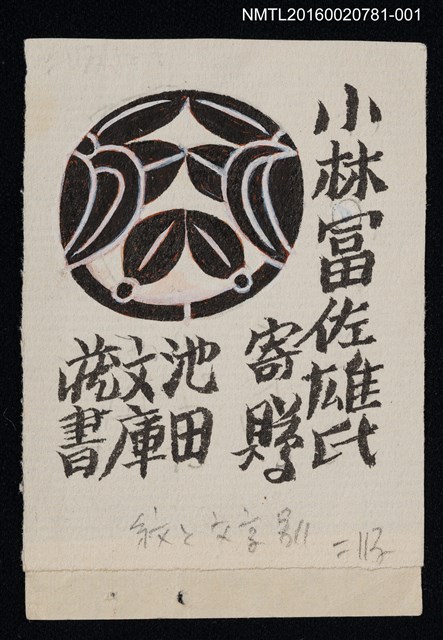 NMTL20160020781-001
小林富佐雄氏
寄贈
池田
文庫
蔵書
紋と文字別